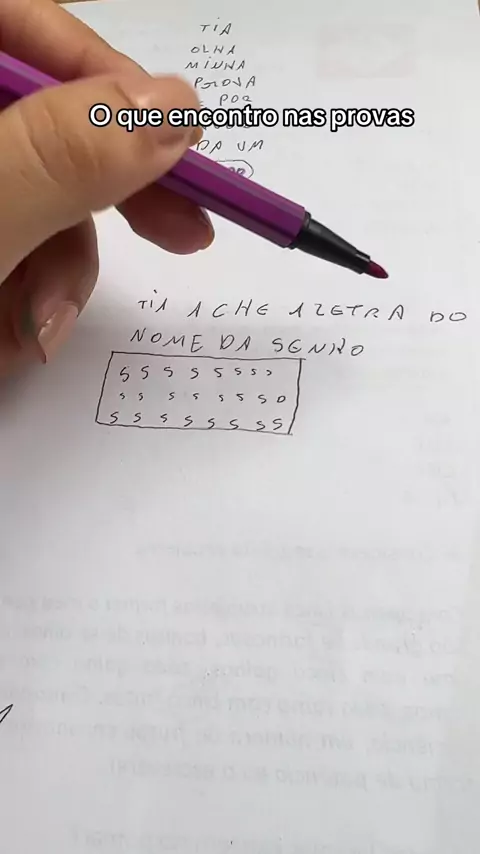 TIA
OLHA
MINHA
PROVA
POR
O que encontro nas provas
DA UM
TIA ACHE A LETRA DO
NOME DA SENHO
S S S S S S S S
S S S S S S S D
S S S S S S S S